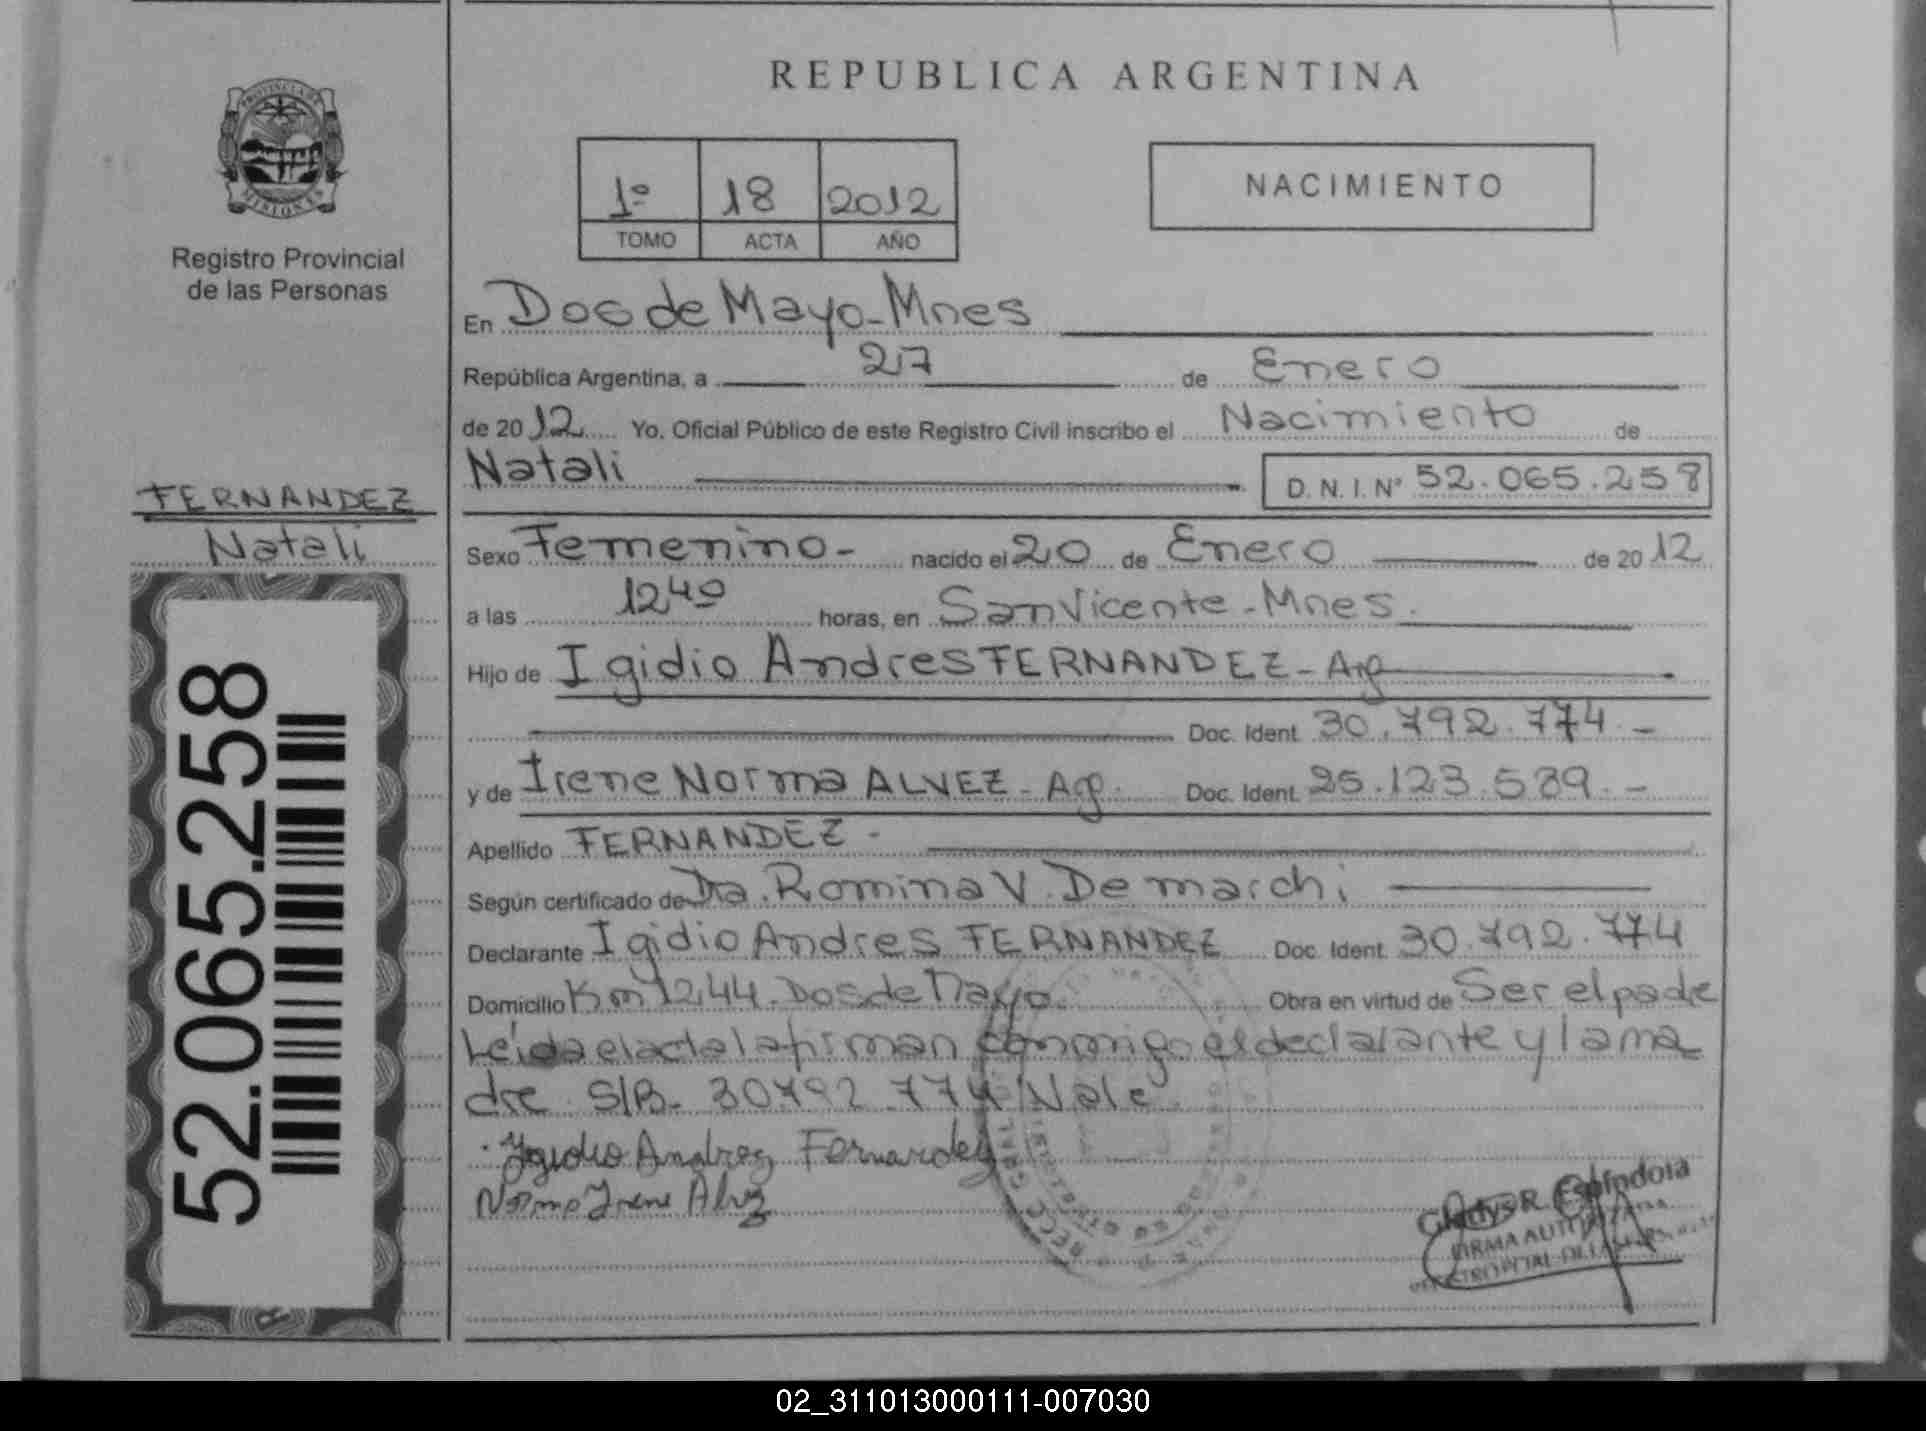 REPUBLICA ARGENTINA
PROVINCIA DE
MISIONES
Registro Provincial
de las Personas
1º 18 2012
TOMO ACTA AÑO
NACIMIENTO
En Dos de Mayo - Mnes
República Argentina, a 27 de Enero
de 2012 Yo, Oficial Público de este Registro Civil inscribo el Nacimiento de
Natali D.N.I. Nº 52.065.258
FERNANDEZ
Natali
Sexo Femenino - nacido el 20 de Enero de 2012
a las 12 40 horas, en San Vicente - Mnes.
Hijo de Igidio Andres FERNANDEZ - Arg
Doc. Ident. 30.792.774.-
y de Irene Norma ALVEZ - Arg. Doc. Ident. 25.123.589.-
Apellido FERNANDEZ -
Según certificado de Dra. Romina V. De marchi
Declarante Igidio Andres FERNANDEZ Doc. Ident. 30.792.774
Domicilio Km 1244. Dos de Mayo. Obra en virtud de Ser el padre
Leida el acta la firman conmigo el declarante y la ma
dre. S/B- 30792.774 Vale
Igidio Andrez Fernandez
Norma Irene Alvez
Gladys R. Espindola
FIRMA AUTORIZADA
52.065.258
02_311013000111-007030